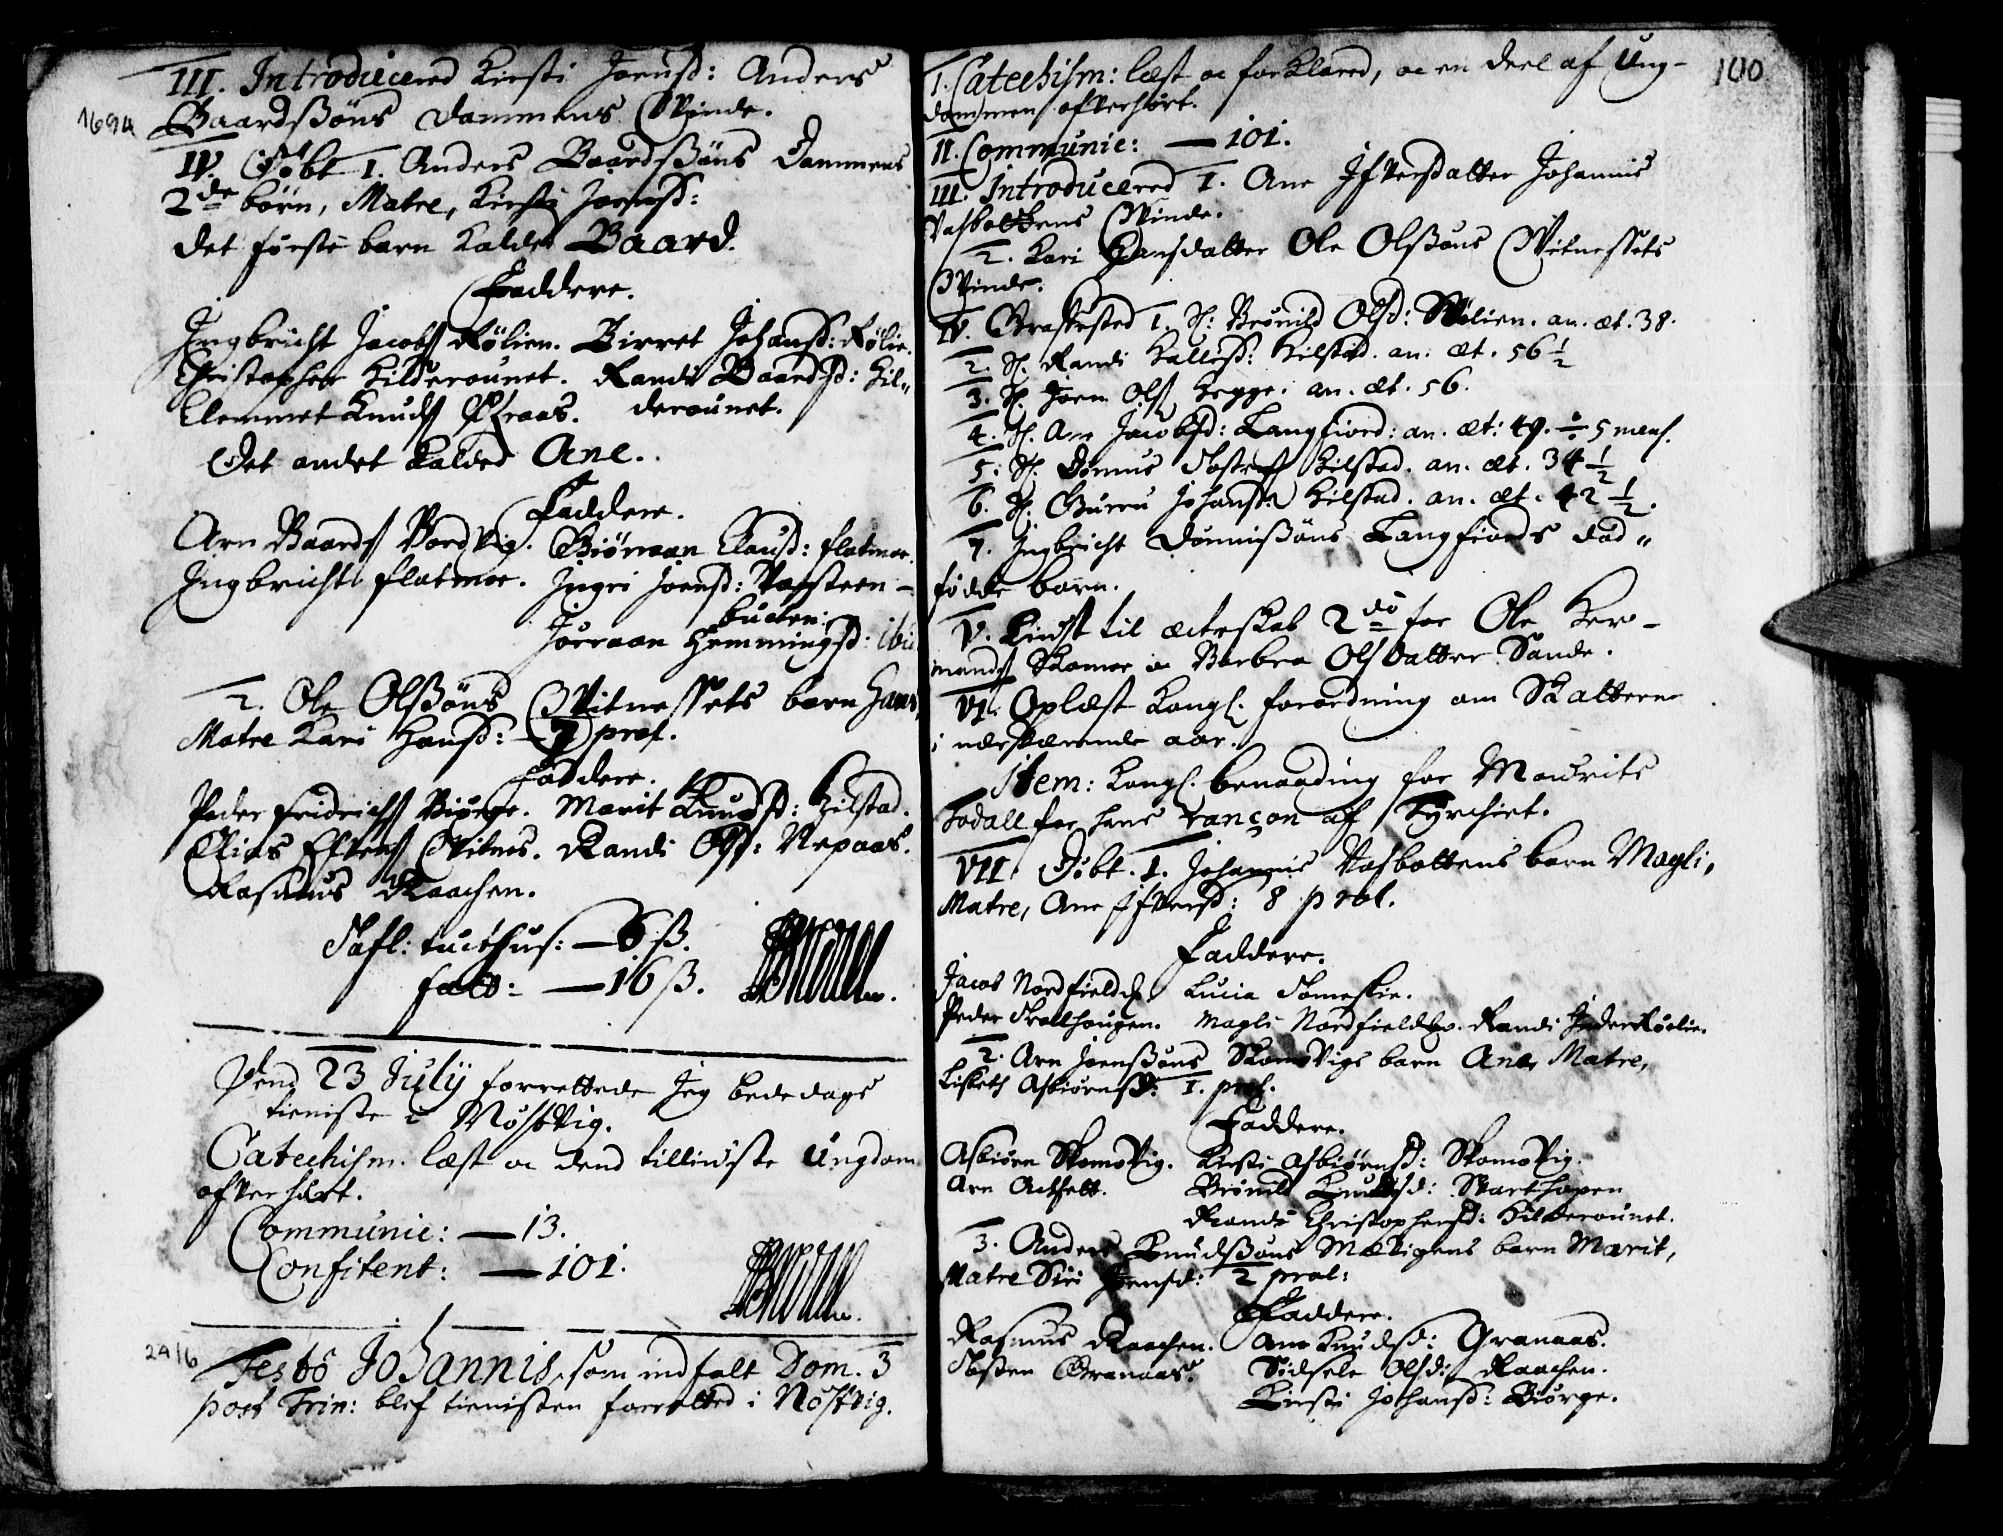 III. Introduceered Kirsti Joensd: Anders
1694
Baardsßöns Dammens Qvinde.
IV. Döbt 1. Anders Baardsßöns Dammens
2de börn, Matre, Kirsti Joensd:
Det förste barn kaldet Baard.
Faddere.
Ingbricht Jacobs Rölien. Birret Johansd: Rölie.
Christopher Kilderounet. Randi Baardsd: Kil„
Clemmet Knuds Graas. derounet.
Det andet kalded Ane.
Faddere.
Arn Baards Nordvig. Giöraan Clausd: flatmoe.
Ingbricht flatmoe. Ingri Joensd: Vassteen-
bucten:
Jörraan Hemmingsd: ibid
2. Ole Olßöns Qvitnessets barn Hans,
Matre Kari Hansd: 7 pref.
Faddere.
Peder Fridrichs Biörge. Marit Knudsd: Hilstad.
Elias Efvens Qvitnes. Randi Olsd: Nepaas.
Rasmus Raachen.
Tafl: tucthus: — 8 ß.
fatt: — 16 ß.
Dend 23 Julij forrettede Jeg bededags
tieniste i Nöstvig.
Catechism. læst oc dend tilliuste Ungdom
ofverhört.
Communic: — 13.
Confitent: — 101.
24 16
Festo Johannis, som indfalt Dom. 3
post Trin: blef tienisten forretted i Nöstvig.
100
I. Catechism: læst oc forklared, oc en deel af Ung-
dommen ofverhört.
II. Communic: — 101.
III. Introduceered 1. Ane Ifversdatter Johannis
Vasbottens Qvinde.
2. Kari Hansdatter Ole Olßöns Qvitnessets
Qvinde.
IV. Grafested 1. S: Brönild Olsd: Völien. an. æt. 38.
2. S. Randi Hallesd: Hilstad. an. æt. 56 1/2
3. S. Joen Ols Hegge. an. æt. 56.
4. S. Ane Jacobsd: Langfiord: an. æt: 49. ÷ 5 mens.
5. S. Tommes Tostens Hilstad. an. æt. 34 1/2
6. S. Gurru Johansd Hilstad. an. æt. 42 1/2.
7. Ingbricht Dönnißöns Langfiords död„
födde barn.
V. Liust til ecteskab 2do for Ole Her-
mands Skamoe oc Barbra Olsdatter Sande.
VI. Oplæst Kongl. forordning om Skatterne
i nærværende aar.
Item: Kongl. benaading for Mouritz
Todall for hans rançon af Tyrchiet.
VII. Döbt. 1. Johannis Vasbottens barn Magli,
Matre, Ane Ifversd: 8 prol.
Faddere.
Jacob Nordfieldh. Lucia Someskie.
Peder Trollhougen. Magli Nordfieldho. Randi Rölie.
2. Arn Joenßöns Skomsvigs barn Ane, Matre,
Lisbeth Asbiörnsd: 1. prol.
Faddere.
Asbiörn Skomsvig. Kirsti Asbiörnsd: Skomsvig.
Arn Actfelt. Brönild Knudsd: Svarthopen
Randi Christophersd: Kilderounet.
3. Anders Knudßöns Mævigens barn Marit,
Matre Siri Joensd: 2 prol:
Faddere.
Rasmus Raachen. Ane Knudsd: Granaas.
Tosten Granaas. Sidsele Olsd: Raachen.
Kirsti Johansd: Biörge.